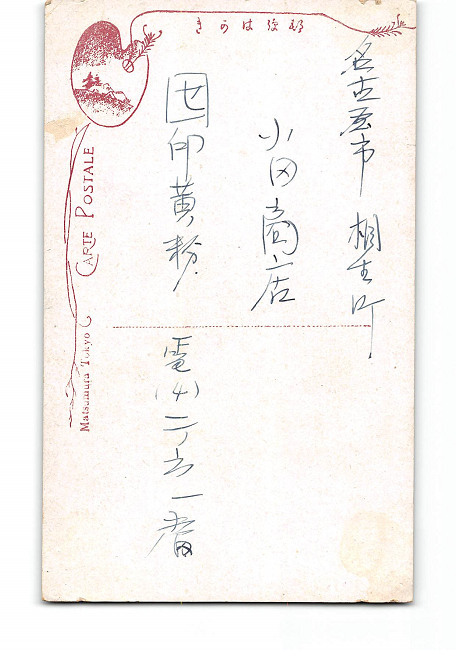 きかは便郵
名古屋市 相生町
小田商店
世印黄粉
電(4)二五一番
CARTE POSTALE
Matsumura Tokyo